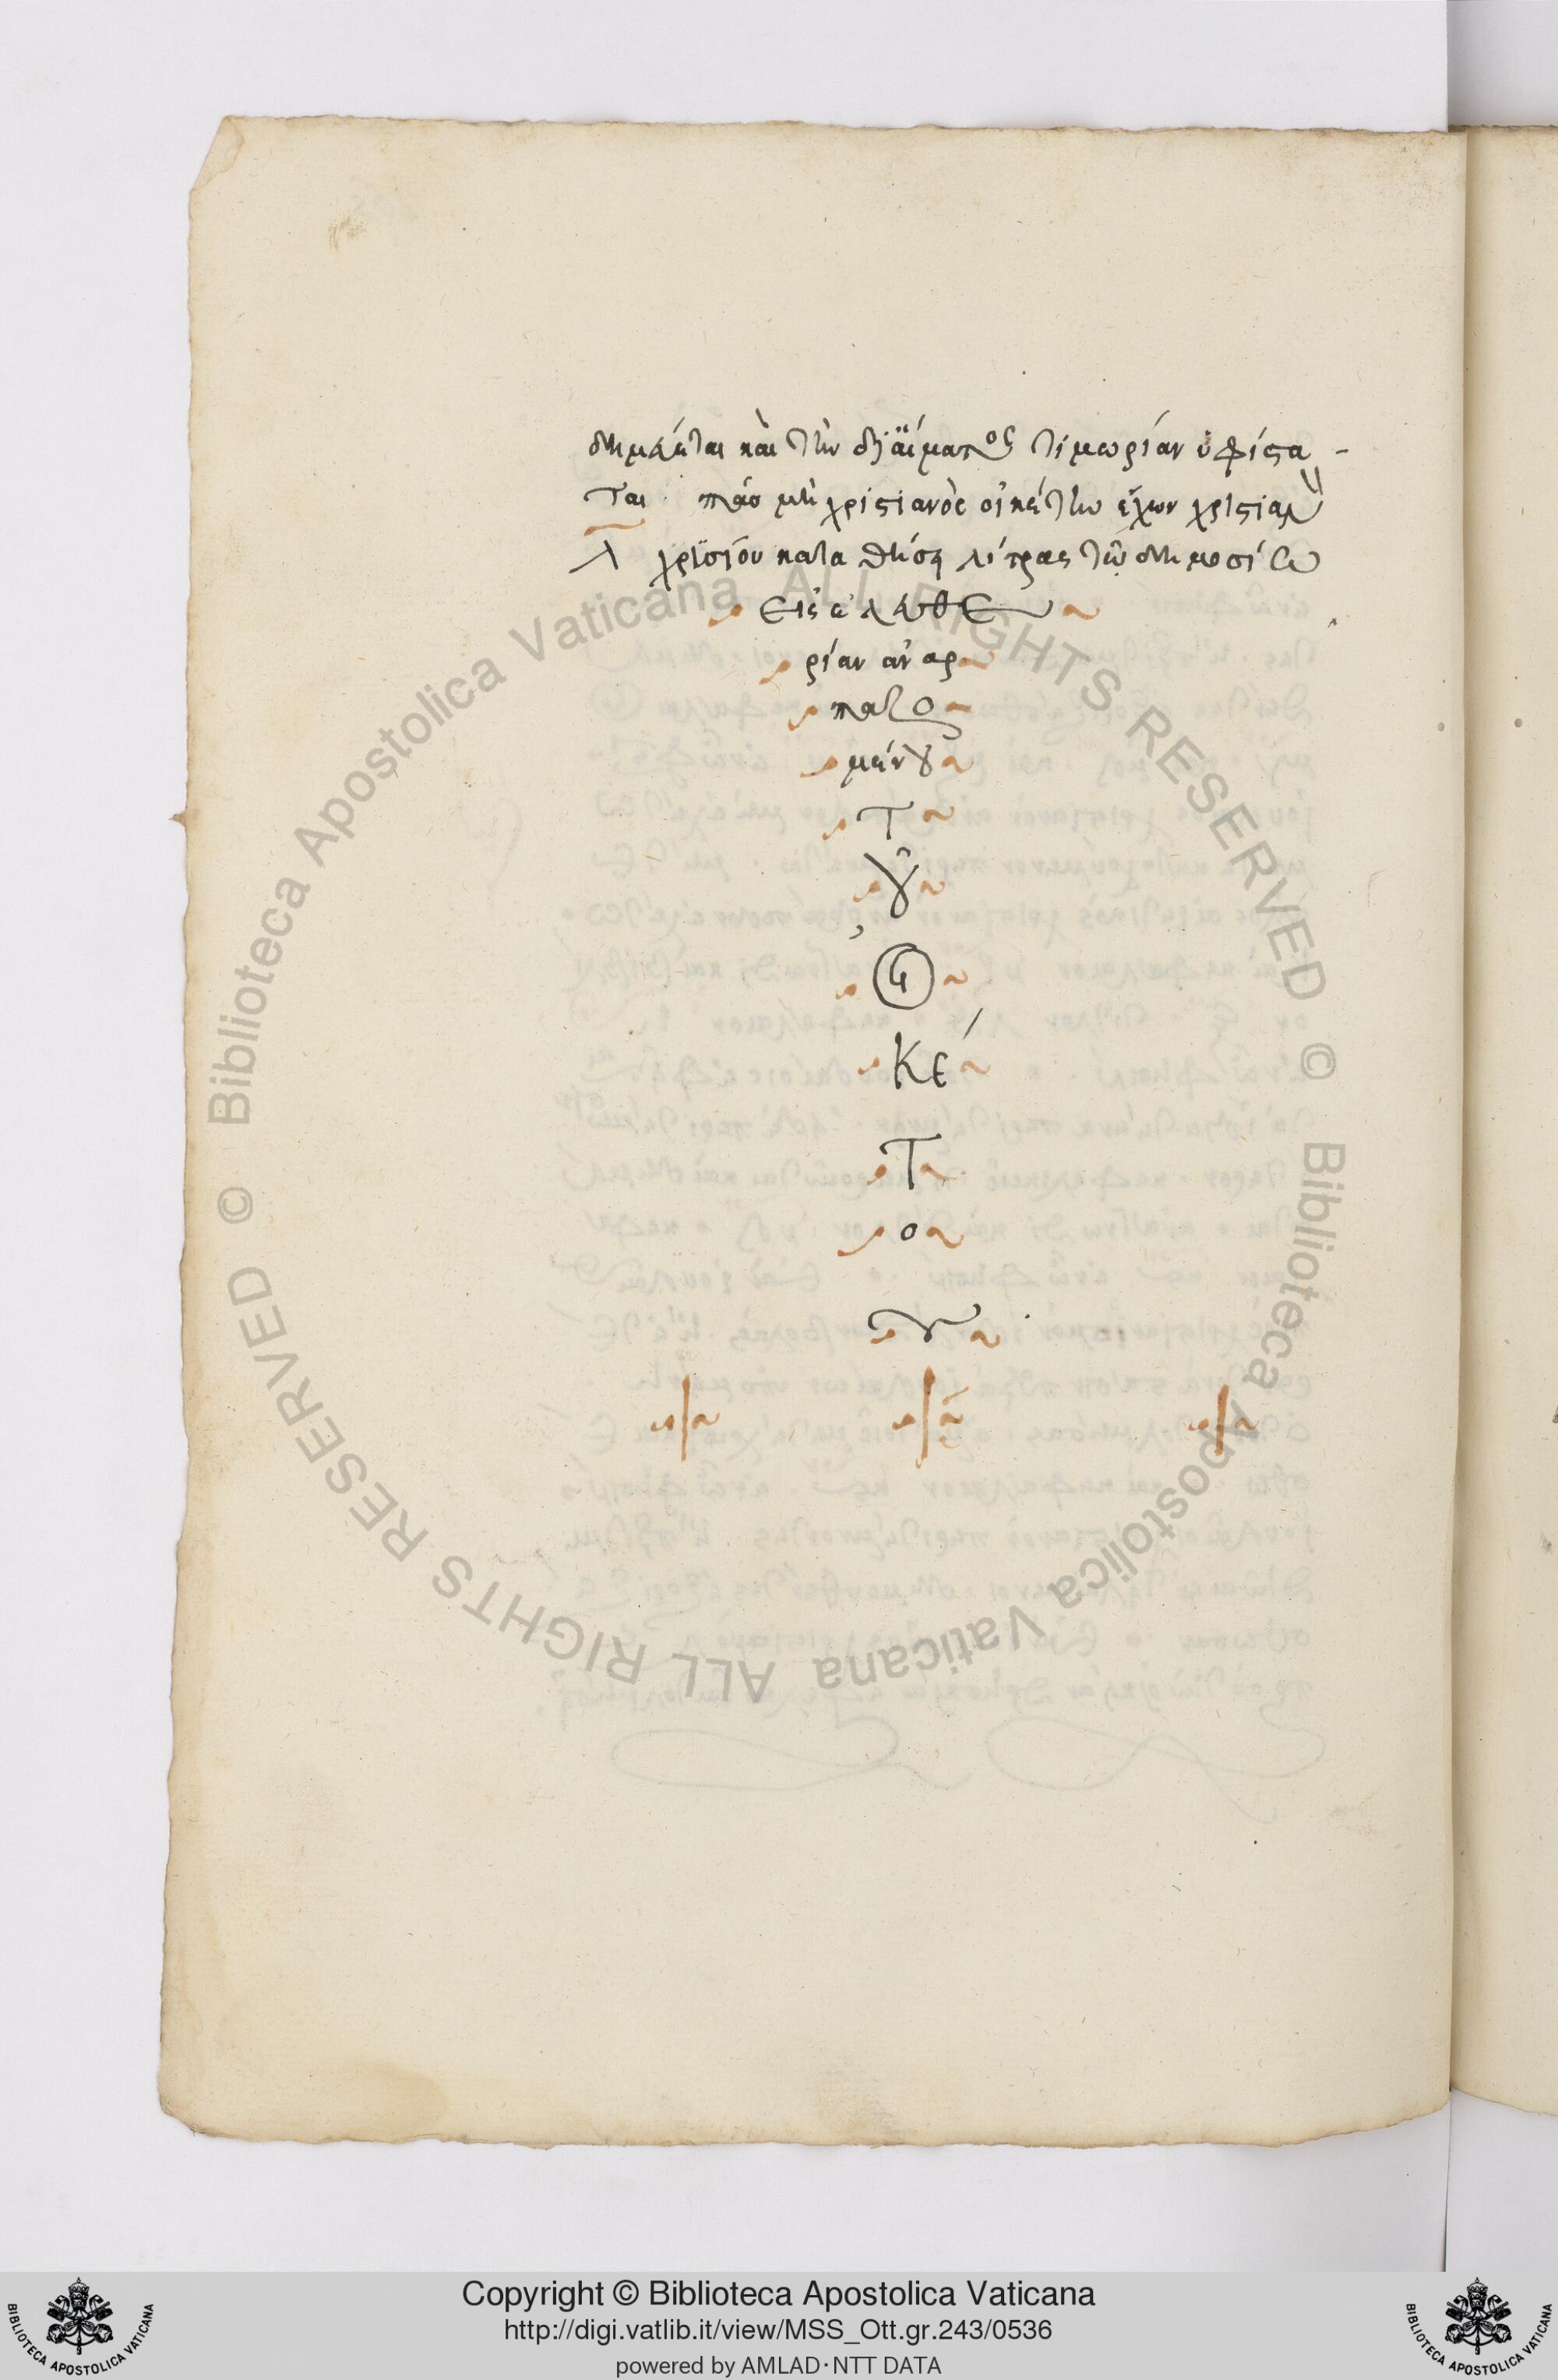 δημεύεται καὶ τὴν δι αἵματος τιμωρίαν ὑφίστα-
ται. πᾶσ μὴ χριστιανὸς οἰκέτην ἔχων χριστιαν
λ χρϋσίου καταθήσει λίτρας τῶ δημοσίω
εις ελευθε
ρίαν αναρ
παζο
μένου
τ
οῦ
οι
κέ
τ
ο
υ
Biblioteca Apostolica Vaticana ALL RIGHTS RESERVED ©
Biblioteca Apostolica Vaticana ALL RIGHTS RESERVED ©
Copyright © Biblioteca Apostolica Vaticana
http://digi.vatlib.it/view/MSS_Ott.gr.243/0536
powered by AMLAD·NTT DATA
BIBLIOTECA APOSTOLICA VATICANA
BIBLIOTECA APOSTOLICA VATICANA